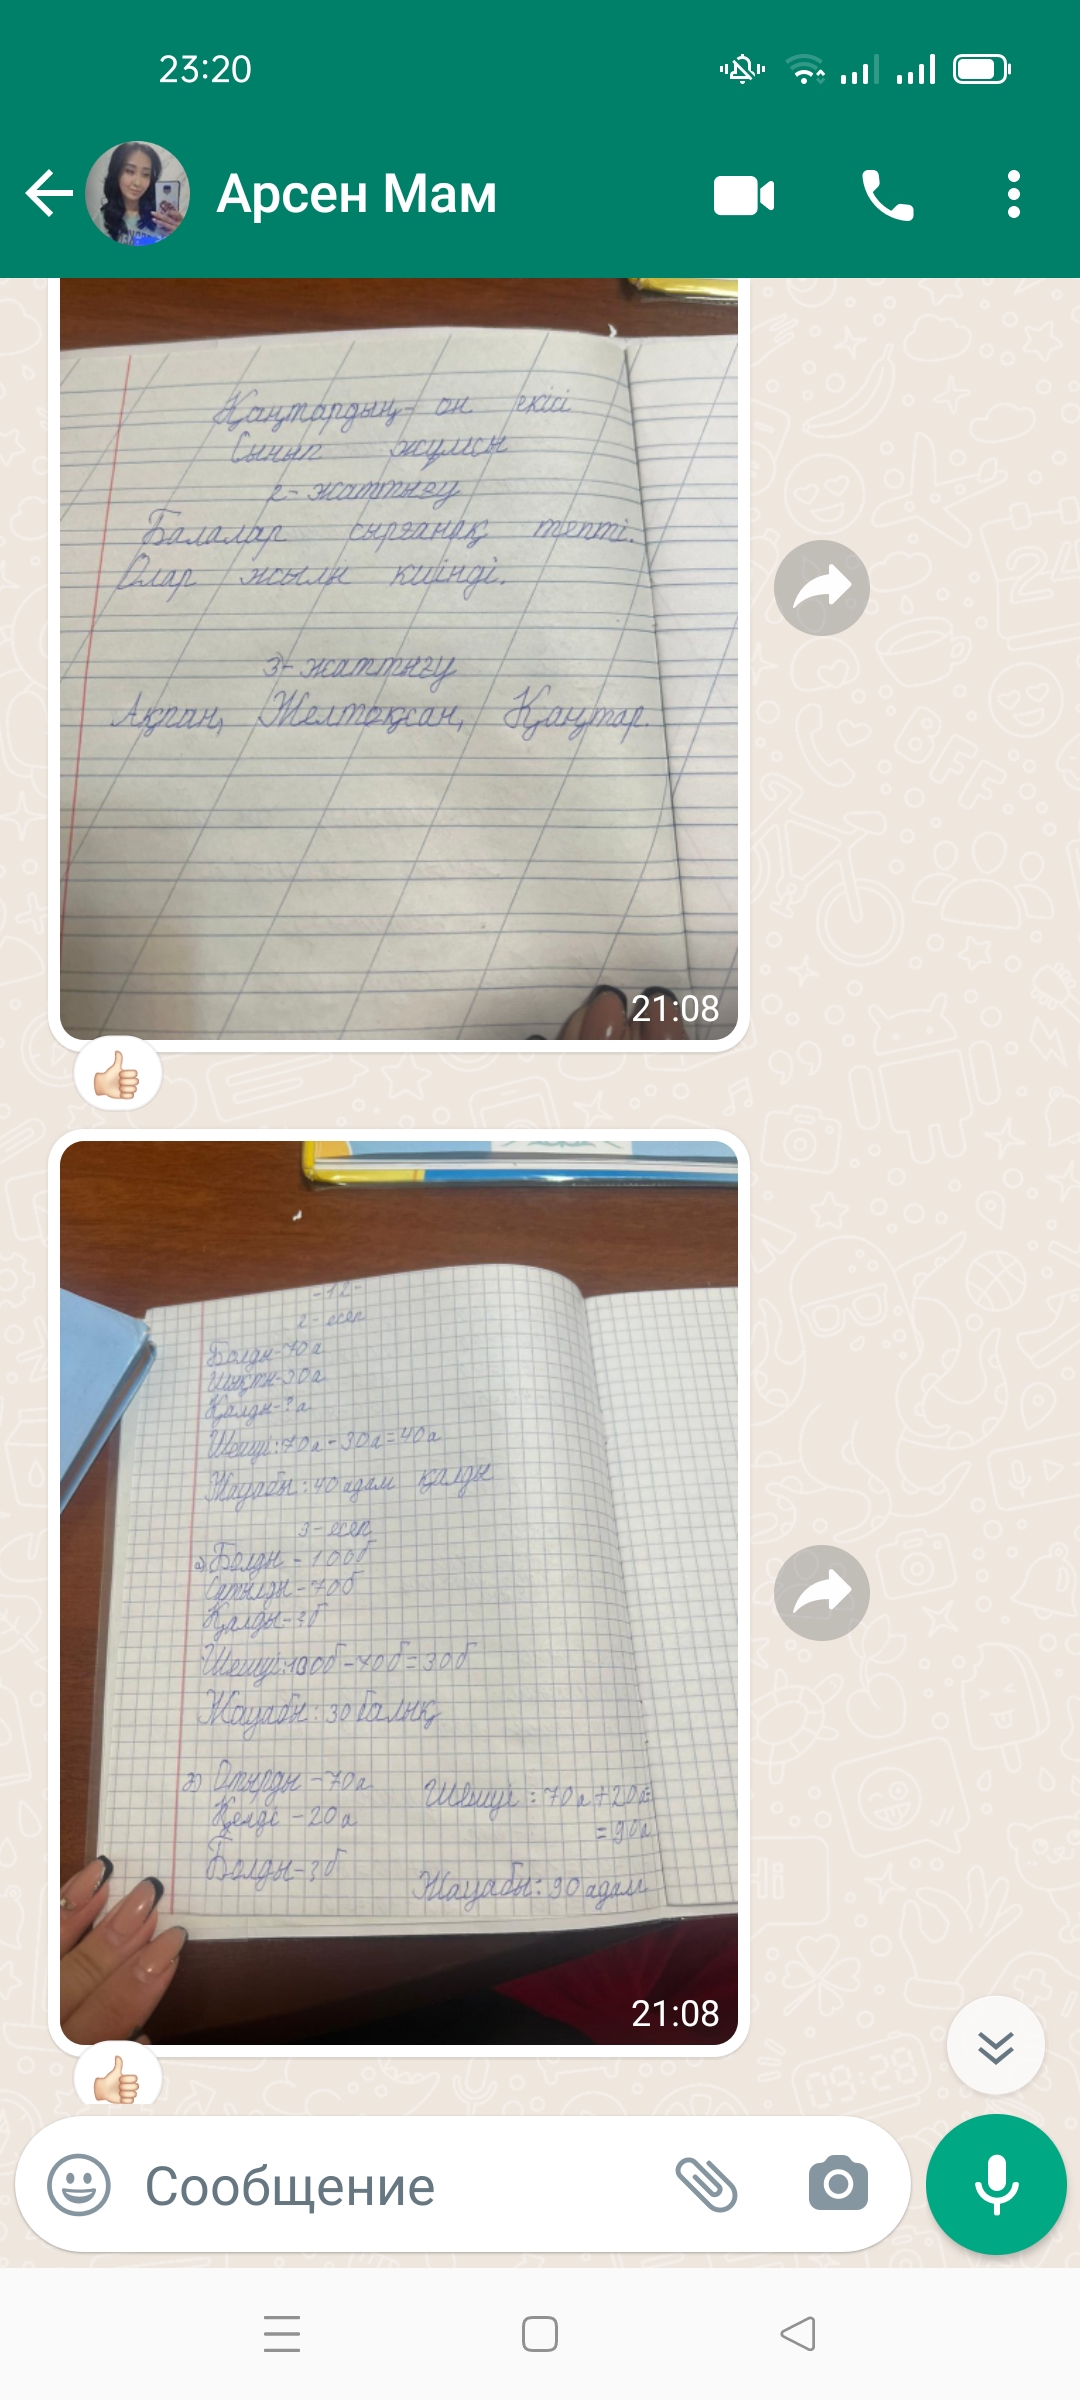 23:20
Арсен Мам
Қаңтардың- он екісі
Сынып жұмсы
2- жаттығу
Балалар сырғанақ тепті.
Олар жылы киінді.
3- жаттығу
Ақпан, Желтоқсан, Қаңтар.
21:08
-12-
2- есеп
Болды-70а
Шықты-30а
Қалды-?а
Шешуі:70а-30а=40а
Жауабы:40адам қалды
3-есеп
а)Болды - 100б
Сатылды-70б
Қалды-?б
Шешуі:100б-70б=30б
Жауабы:30балық
Отырды -70а
Шешуі:70а+20а=
Келді -20а
=90а
Болды-?б
Жауабы:90адам
21:08
Сообщение